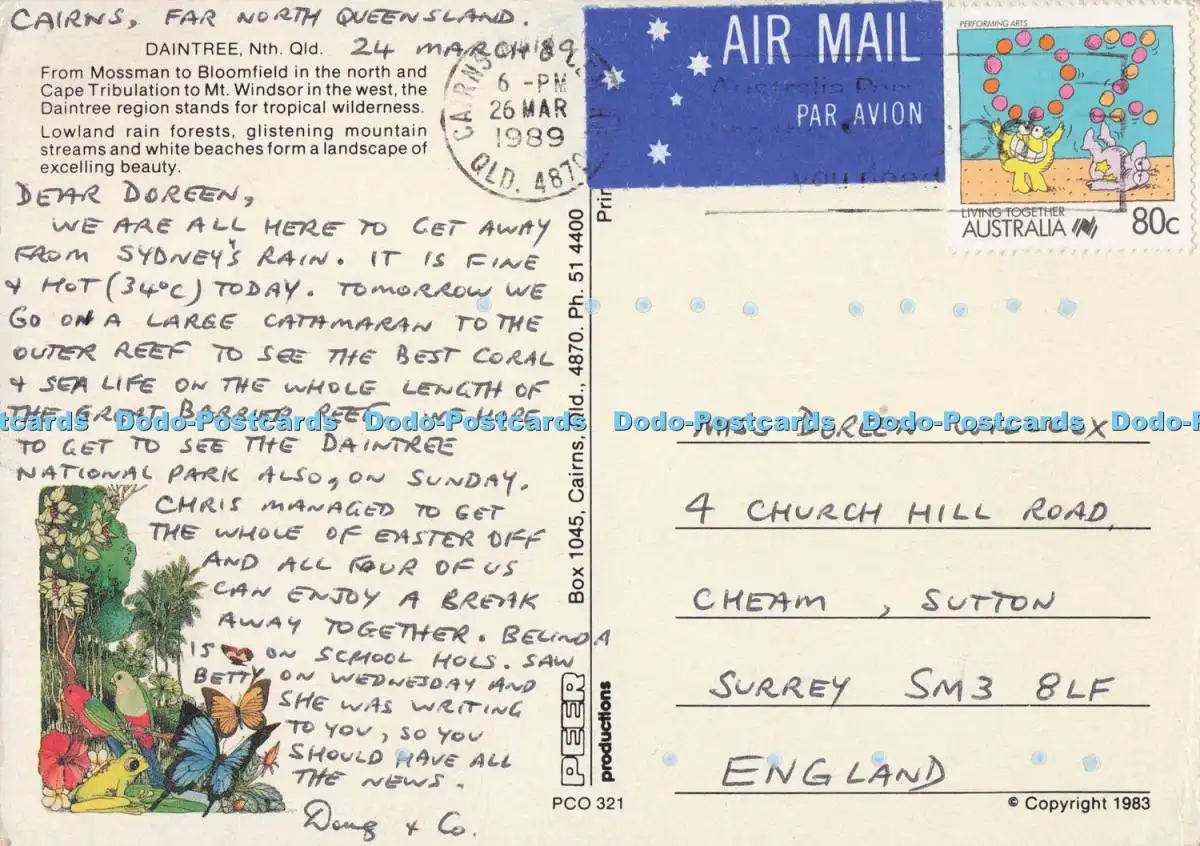 CAIRNS, FAR NORTH QUEENSLAND.
24 MARCH 89
DAINTREE, Nth. Qld.
From Mossman to Bloomfield in the north and
Cape Tribulation to Mt. Windsor in the west, the
Daintree region stands for tropical wilderness.
Lowland rain forests, glistening mountain
streams and white beaches form a landscape of
excelling beauty.
DEAR DOREEN,
WE ARE ALL HERE TO GET AWAY
FROM SYDNEY'S RAIN. IT IS FINE
& HOT (34°C) TODAY. TOMORROW WE
GO ON A LARGE CATAMARAN TO THE
OUTER REEF TO SEE THE BEST CORAL
& SEA LIFE ON THE WHOLE LENGTH OF
THE GREAT BARRIER REEF. WE HOPE
TO GET TO SEE THE DAINTREE
NATIONAL PARK ALSO, ON SUNDAY.
CHRIS MANAGED TO GET
THE WHOLE OF EASTER OFF
AND ALL FOUR OF US
CAN ENJOY A BREAK
AWAY TOGETHER. BELINDA
IS ON SCHOOL HOLS. SAW
BETTY ON WEDNESDAY AND
SHE WAS WRITING
TO YOU, SO YOU
SHOULD HAVE ALL
THE NEWS.
Doug & Co.
CAIRNS
6 -PM
26 MAR
1989
QLD. 4870
AIR MAIL
PAR AVION
Australia
you need
PERFORMING ARTS
LIVING TOGETHER
AUSTRALIA
80c
Box 1045, Cairns, Qld., 4870. Ph. 51 4400
PEER
productions
PCO 321
DOREEN
4 CHURCH HILL ROAD,
CHEAM, SUTTON
SURREY SM3 8LF
ENGLAND
© Copyright 1983
Dodo-Postcards Dodo-Postcards Dodo-Postcards Dodo-Postcards Dodo-Postcards